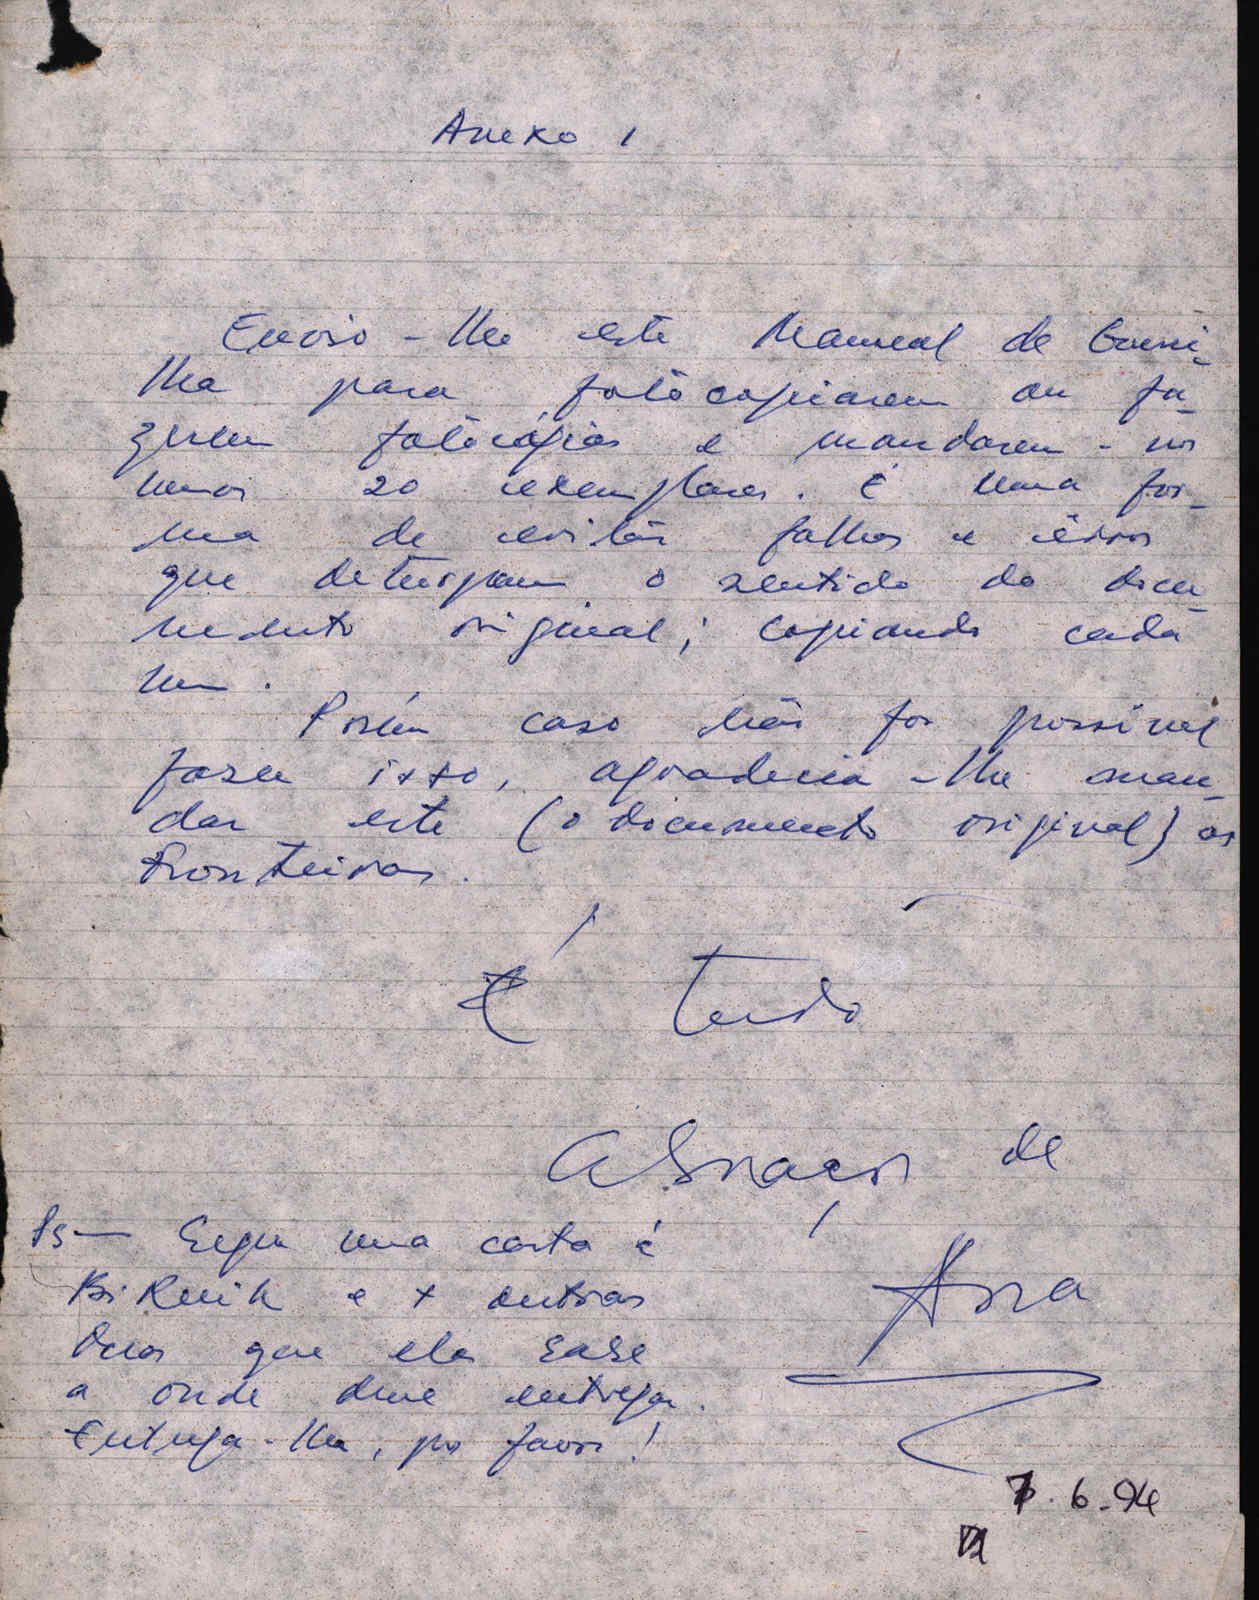 Anexo 1
Envio-lhe este Manual de Guerri-
lha para fotócopiarem ou fa-
zerem fotócópias e mandarem-nos
uns 20 exemplares. É uma for-
ma de evitar falhas e êrros
que deturpam o sentido do docu-
mento original; copiando cada
um.
Porém caso não for possivel
fazer isso, agradecia-lhe man-
dar este (o documento original) as
Fronteiras.
É tudo
Abraços de
Ps— Segu uma carta é
Bi Ruik e + outras
duas que ela sabe
a onde deve entregar.
Entrega-lha, por favor!
Ana
7.6.94